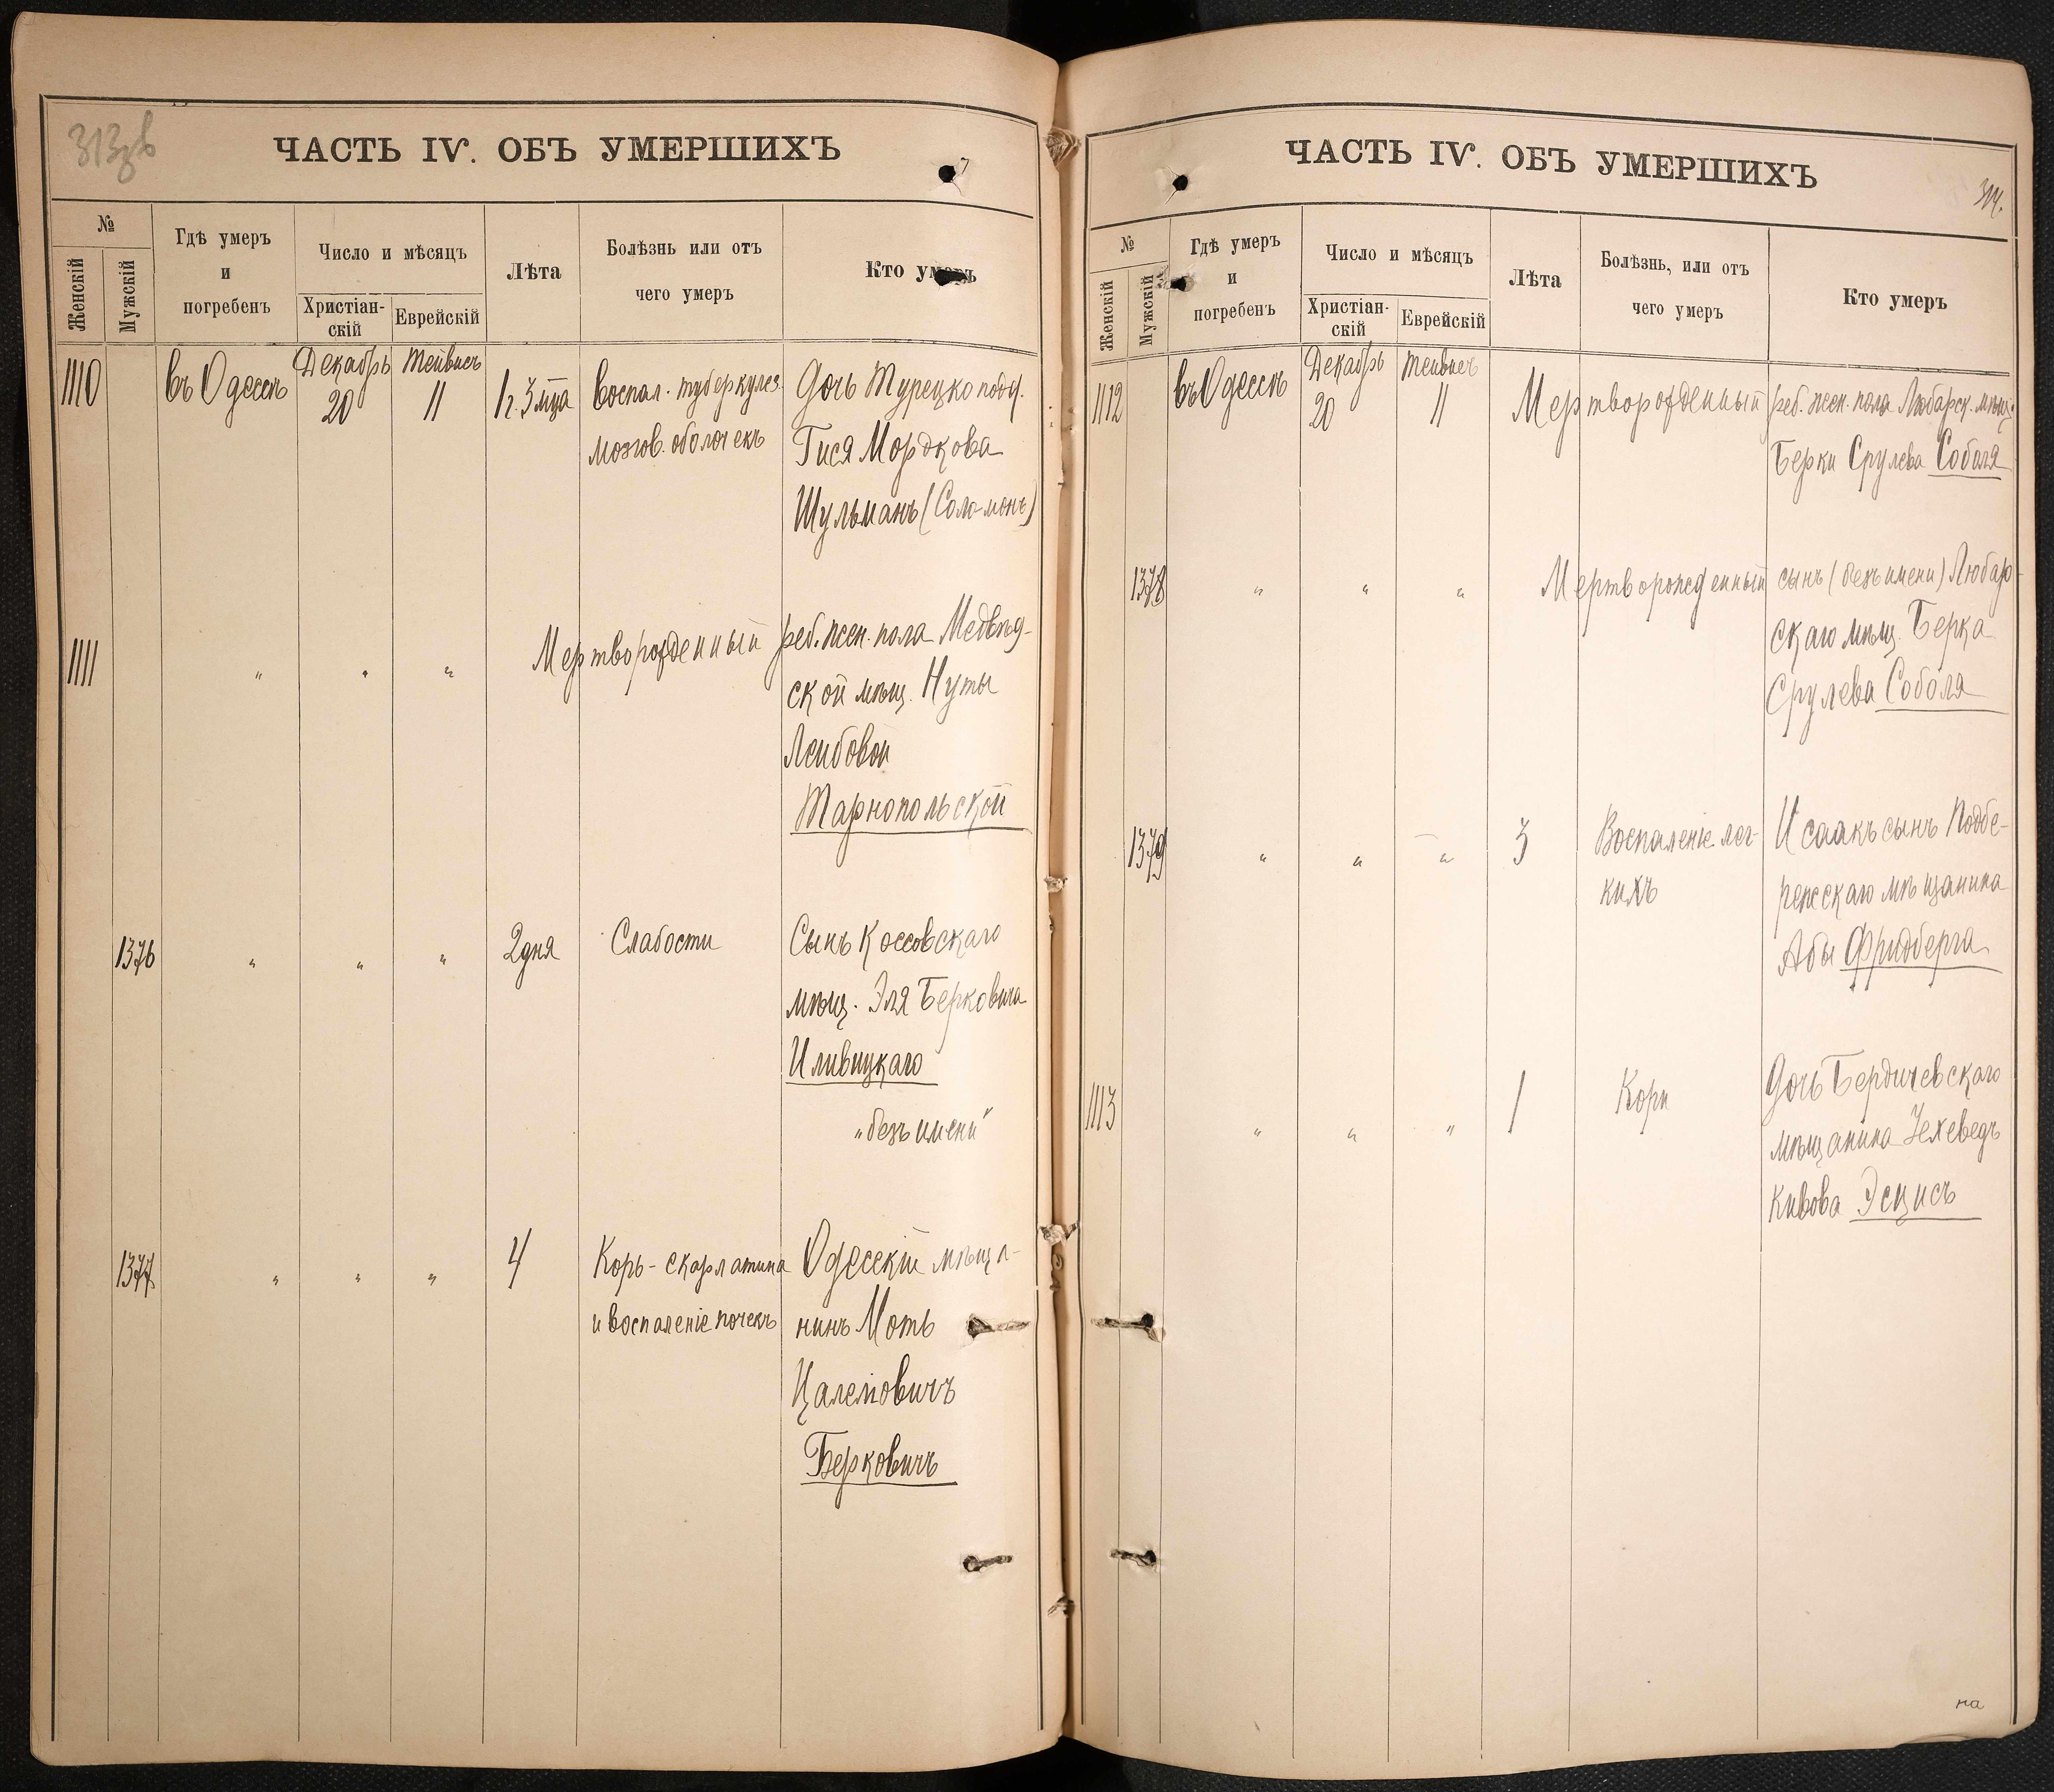 313об
ЧАСТЬ IV. ОБЪ УМЕРШИХЪ
№
Женскій
Мужскій
Гдѣ умеръ
и
погребенъ
Число и мѣсяцъ
Христіан-
скій
Еврейскій
Лѣта
Болѣзнь или отъ
чего умеръ
Кто умеръ
1110 въ Одессѣ Декабрь 20 Тейвисъ 11 1 г. 3 мца воспал. туберкулез. Дочь Турецко подд.
мозгов. оболочекъ Гися Мордкова
Шульманъ (Соломонъ)
1111 " " " Мертворожденный реб. жен. пола Медвѣд-
ской мѣщ. Нуты
Лейбовой
Тарнопольской
1376 " " " 2 дня Слабости Сынъ Коссовскаго
мѣщ. Эля Берковича
Иливицкаго
"безъ имени"
1377 " " " 4 Корь-скарлатина Одесскій мѣща-
и воспаленіе почекъ нинъ Моть
Цалеловичъ
Берковичъ
ЧАСТЬ IV. ОБЪ УМЕРШИХЪ
314.
№
Женскій
Мужскій
Гдѣ умеръ
и
погребенъ
Число и мѣсяцъ
Христіан-
скій
Еврейскій
Лѣта
Болѣзнь, или отъ
чего умеръ
Кто умеръ
1112 въ Одессѣ Декабрь 20 Тейвисъ 11 Мертворожденный реб. жен. пола Любарск. мѣщ.
Берки Срулева Соболя
1378 " " " Мертворожденный сынъ (безъ имени) Любар-
скаго мѣщ. Берка
Срулева Соболя
1379 " " " 3 Воспаленіе лег- Исаакъ сынъ Поддбе-
кихъ режскаго мѣщанина
Абы Фридберга
1113 " " " 1 Кори Дочь Бердичевскаго
мѣщанина Іехеведъ
Кивова
на